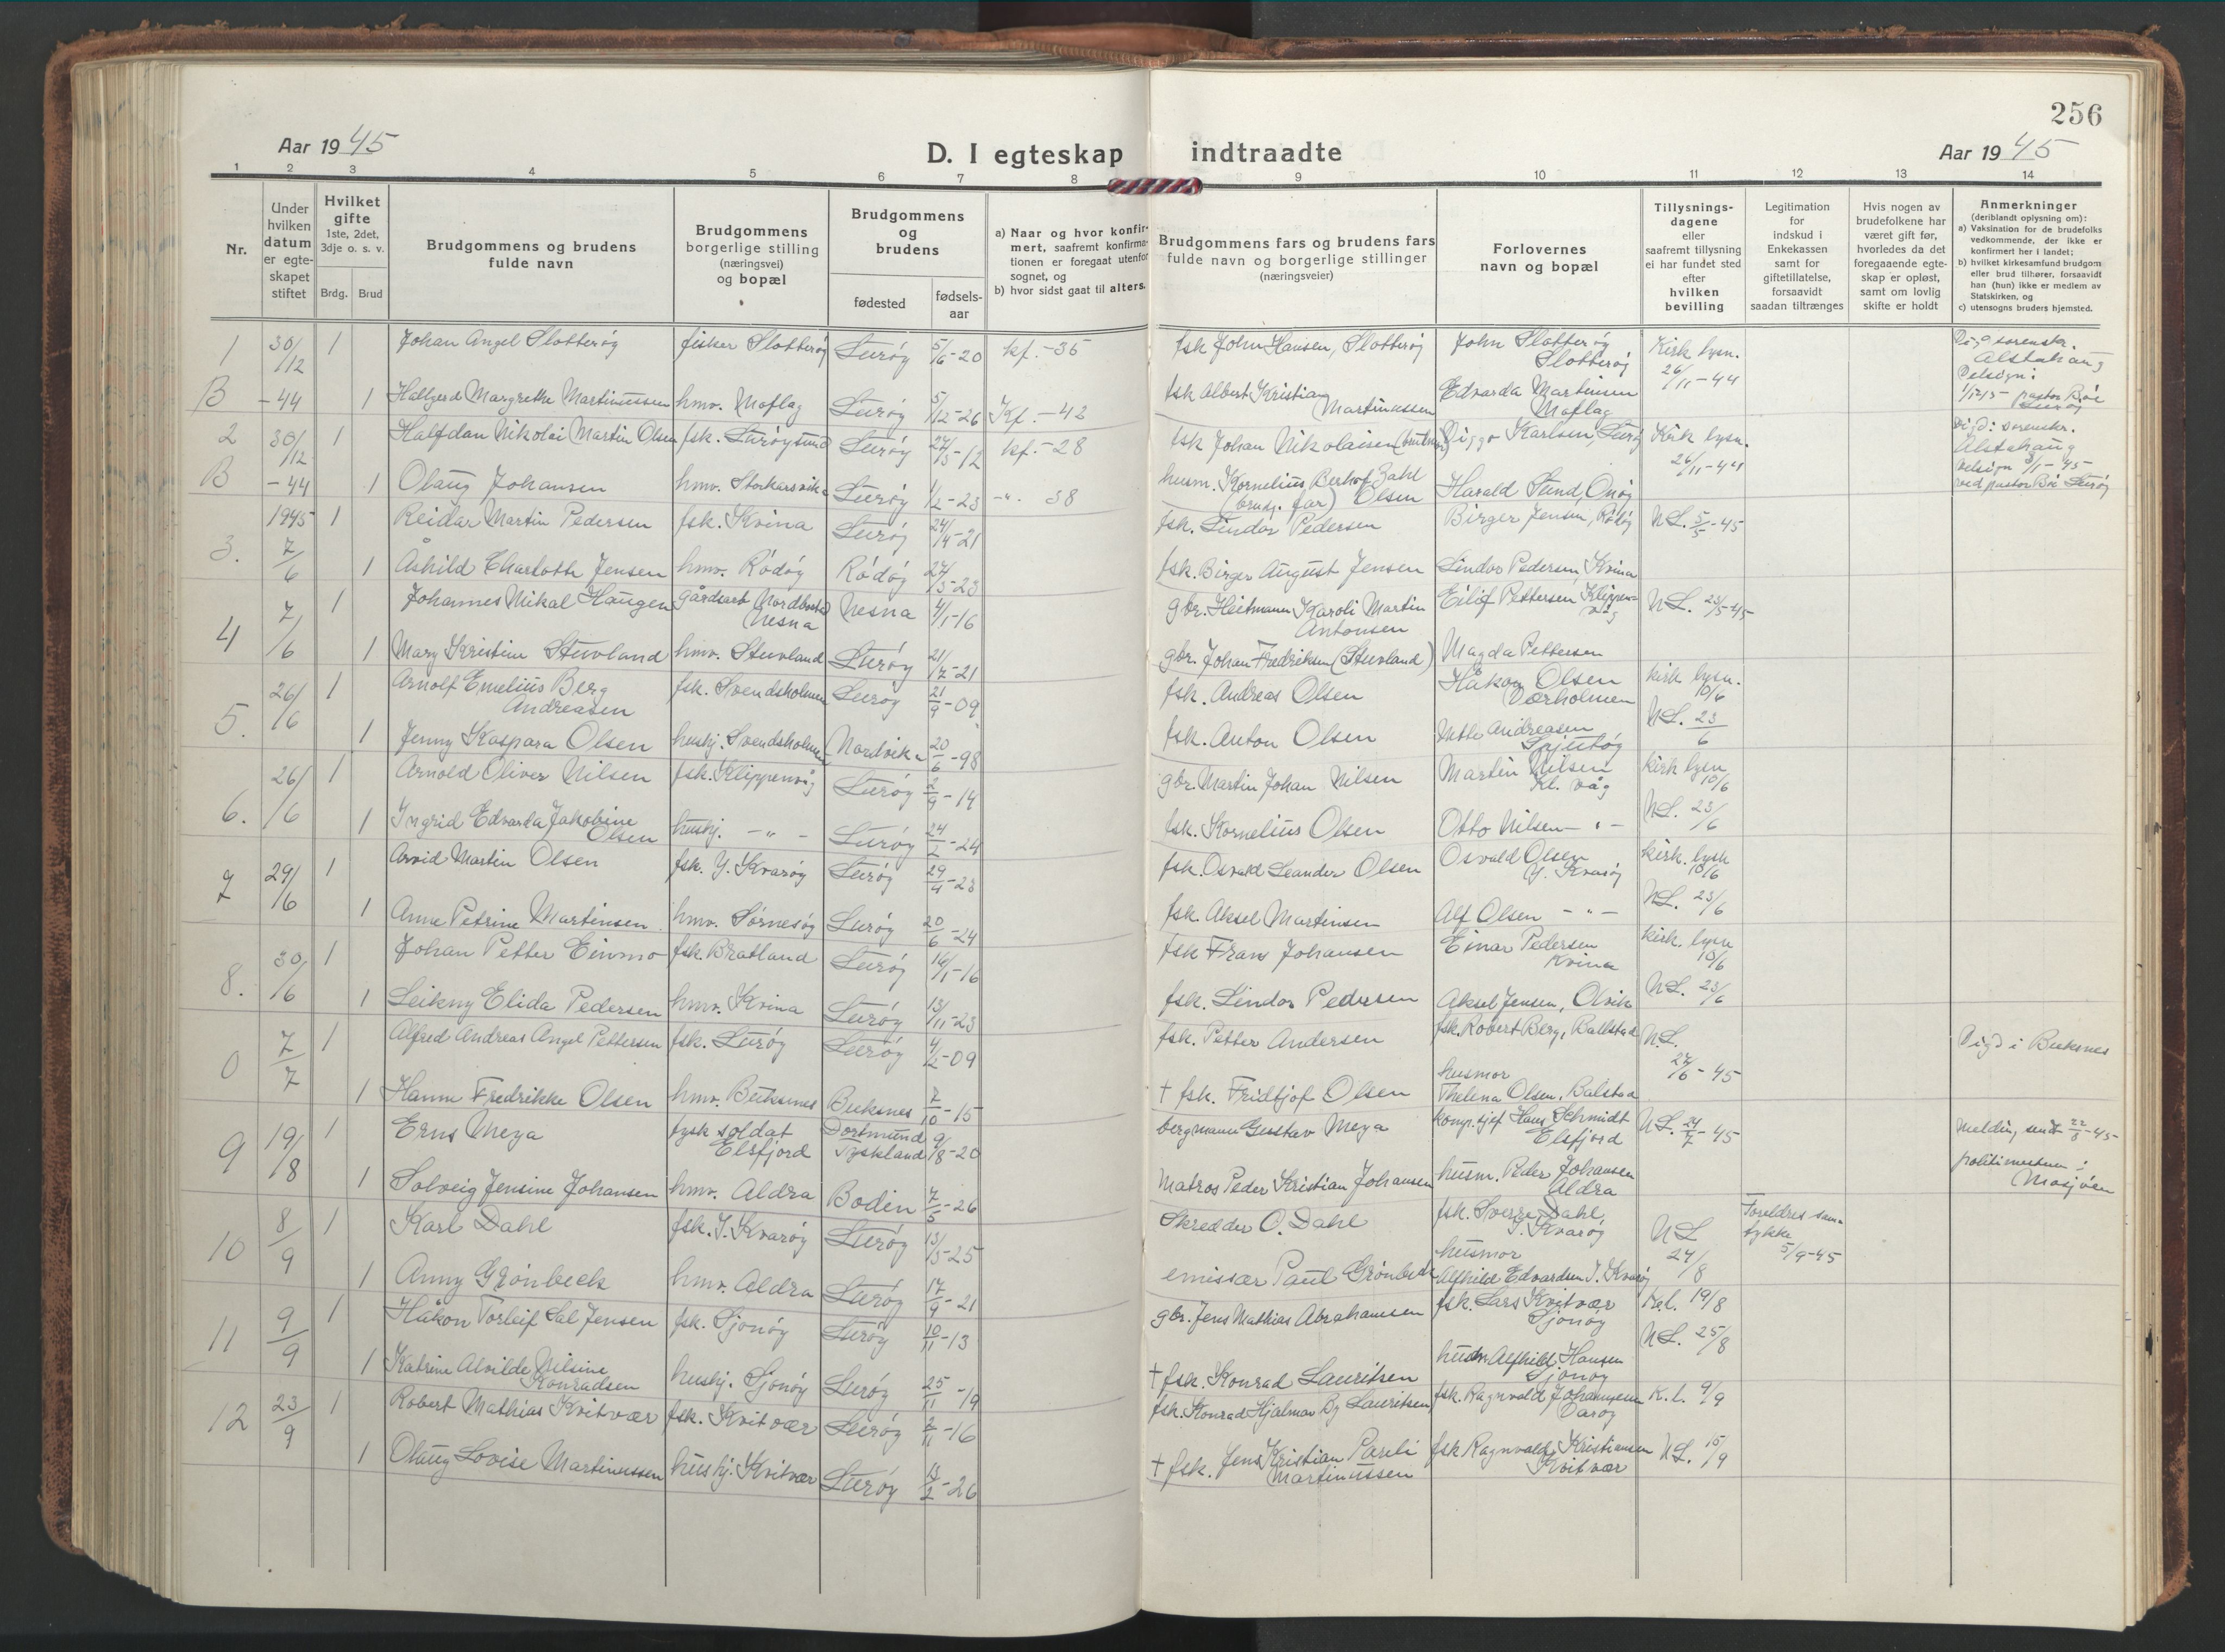 256
Aar 1945
D. I egteskap indtraadte
Aar 1945
1 2 3 4 5 6 7 8 9 10 11 12 13 14
Nr.
Under hvilken datum er egte-skapet stiftet
Hvilket gifte 1ste, 2det, 3dje o. s. v.
Brdg. Brud
Brudgommens og brudens fulde navn
Brudgommens borgerlige stilling (næringsvei) og bopæl
Brudgommens og brudens
fødested
fødsels-aar
a) Naar og hvor konfir-mert, saafremt konfirma-tionen er foregaat utenfor sognet, og b) hvor sidst gaat til alters.
Brudgommens fars og brudens fars fulde navn og borgerlige stillinger (næringsveier)
Forlovernes navn og bopæl
Tillysnings-dagene eller saafremt tillysning ei har fundet sted efter hvilken bevilling
Legitimation for indskud i Enkekassen samt for giftetillatelse, forsaavidt saadan tiltrænges
Hvis nogen av brudefolkene har været gift før, hvorledes da det foregaaende egte-skap er opløst, samt om lovlig skifte er holdt
Anmerkninger (deriblandt oplysning om): a) Vaksination for de brudefolks vedkommende, der ikke er konfirmert her i landet; b) hvilket kirkesamfund brudgom eller brud tilhører, forsaavidt han (hun) ikke er medlem av Statskirken, og c) utensogns bruders hjemsted.
1 30/12 1 Johan Angel Slotterøy fisker Slotterøy Lurøy 5/6-20 kf.-35 fsk John Hansen, Slotterøy John Slotterøy Slotterøy Kirk lysn. 26/11-44 Alstahaug
B -44 1 Hallgerd Margrethe Martinussen hmv. Moflag Lurøy 5/12-26 Kf.-42 fsk Albert Kristian Martinussen Edvarda Martinsen Moflag
2 30/12 1 Halfdan Nikolai Martin Olsen fsk. Lurøysund Lurøy 27/3-12 kf.-28 fsk Johan Nikolaisen Viggo Karlsen, Lurøy Kirk lysn. 26/11-44 Alstahaug
B -44 1 Olaug Johansen hmv. Storkarsvik Lurøy 1/2-23 -"- 38 husm. Kornelius Berhof Zahl Olsen Harald Sund, Onøy
3. 1945 7/6 1 Reidar Martin Pedersen fsk. Kvina Lurøy 24/4-21 fsk. Lindor Pedersen Birger Jensen, Rødøy N.L. 5/5-45
1 Åshild Charlotte Jensen hmv. Rødøy Rødøy 27/3-23 fsk. Birger August Jensen Lindor Pedersen Kvina
4 7/6 1 Johannes Mikal Haugen gårdsarb Nesna Nesna 4/1-16 gbr. Heitmann Karoli Martin Antonsen Eilif Pettersen Klippen-våg N.L. 23/5-45
1 Mary Kristine Stuvland hmv. Stuvland Lurøy 21/7-21 gbr. Johan Fredriksen (Stuvland) Magda Pettersen
5. 26/6 1 Arnolf Emelius Berg Andreasen fsk. Svendsholmen Lurøy 21/9-09 fsk. Andreas Olsen Håkon Olsen Værholmen kirk lysn. 10/6
1 Jenny Kaspara Olsen hushj. Svendsholmen Nordvik 20/6-98 fsk. Anton Olsen Andreasen N.L. 23/6
6. 26/6 1 Arnold Oliver Nilsen fsk. Klippenvåg Lurøy 2/9-14 gbr. Martin Johan Nilsen Martin Nilsen Kl. våg kirk lysn 10/6
1 Ingrid Edvarda Jakobine Olsen hushj. -"- Lurøy 24/2-24 fsk. Kornelius Olsen Otto Nilsen -"- N.L. 23/6
7 29/6 1 Arvid Martin Olsen fsk. Y. Kvarøy Lurøy 29/4-23 fsk. Osvald Leander Olsen Osvald Olsen Y. Kvarøy kirk. lysn 10/6
1 Anne Petrine Martinsen hmv. Sørnesøy Lurøy 20/6-24 fsk. Aksel Martinsen Alf Olsen -"- N.L. 23/6
8. 30/6 1 Johan Petter Einmo fsk. Bratland Lurøy 16/1-16 fsk Frans Johansen Einar Pedersen Kvina kirk. lysn 10/6
1 Leikny Elida Pedersen hmv. Kvina Lurøy 13/11-23 fsk. Lindor Pedersen Aksel Jensen, Olvik N.L. 23/6
0 7/7 1 Alfred Andreas Angel Pettersen fsk. Lurøy Lurøy 4/2-09 fsk. Petter Andersen fsk. Robert Berg, Ballstad N.L. 27/6-45 Vigd i Buksnes
1 Hanna Fredrikke Olsen hmv. Buksnes Buksnes 7/10-15 † fsk. Fridtjof Olsen husmor Thelena Olsen, Balstad
9 19/8 1 Erns Meya tysk soldat Elsfjord Dortmund Tyskland 9/8-20 bergmann Gustav Meya komp.sjef Hans Schmidt Elsfjord N.L. 24/7-45 Melding sendt 22/8-45 politimesteren i Mosjøen
1 Solveig Jensine Johansen hmv. Aldra Bodin 7/5-26 Matros Peder Kristian Johansen husm. Peder Johansen Aldra
10 8/9 1 Karl Dahl fsk. I. Kvarøy Lurøy 13/3-25 Skredder O. Dahl fsk. Sverre Dahl I. Kvarøy N.L 24/8 Foreldres sam-tykke 5/9-45
1 Anny Grønbeck hmv. Aldra Lurøy 17/9-21 emissær Paul Grønbeck husmor Alfhild Edvardsen I. Kvarøy
11 9/9 1 Håkon Torleif Sal Jensen fsk. Sjonøy Lurøy 10/11-13 gbr. Jens Mathias Abrahamsen fsk. Lars Kvitvær Sjonøy 19/8
1 Katrine Alvilde Nilsine Konradsen hushj. Sjonøy Lurøy 25/11-19 † fsk. Konrad Lauritsen Alfhild Hansen Sjonøy N.L. 25/8
12 23/9 1 Robert Mathias Kvitvær fsk. Kvitvær Lurøy 2/11-16 fsk. Konrad Hjalmar Lauritsen fsk. Ragnvald Johannesen K.l. 9/9
1 Olaug Lovise Martinussen hushj. Kvitvær Lurøy 13/2-26 † fsk. Jens Kristian Pareli Martinussen fsk Ragnvald Kristiansen Kvitvær N.L. 15/9